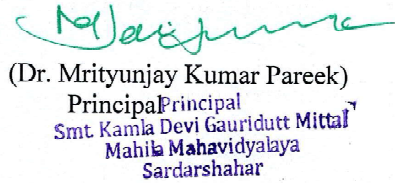 (Dr. Mrityunjay Kumar Pareek)
Principal Principal
Smt. Kamla Devi Gauridutt Mittal
Mahila Mahavidyalaya
Sardarshahar